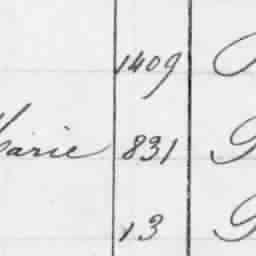 1409
Marie 831
13